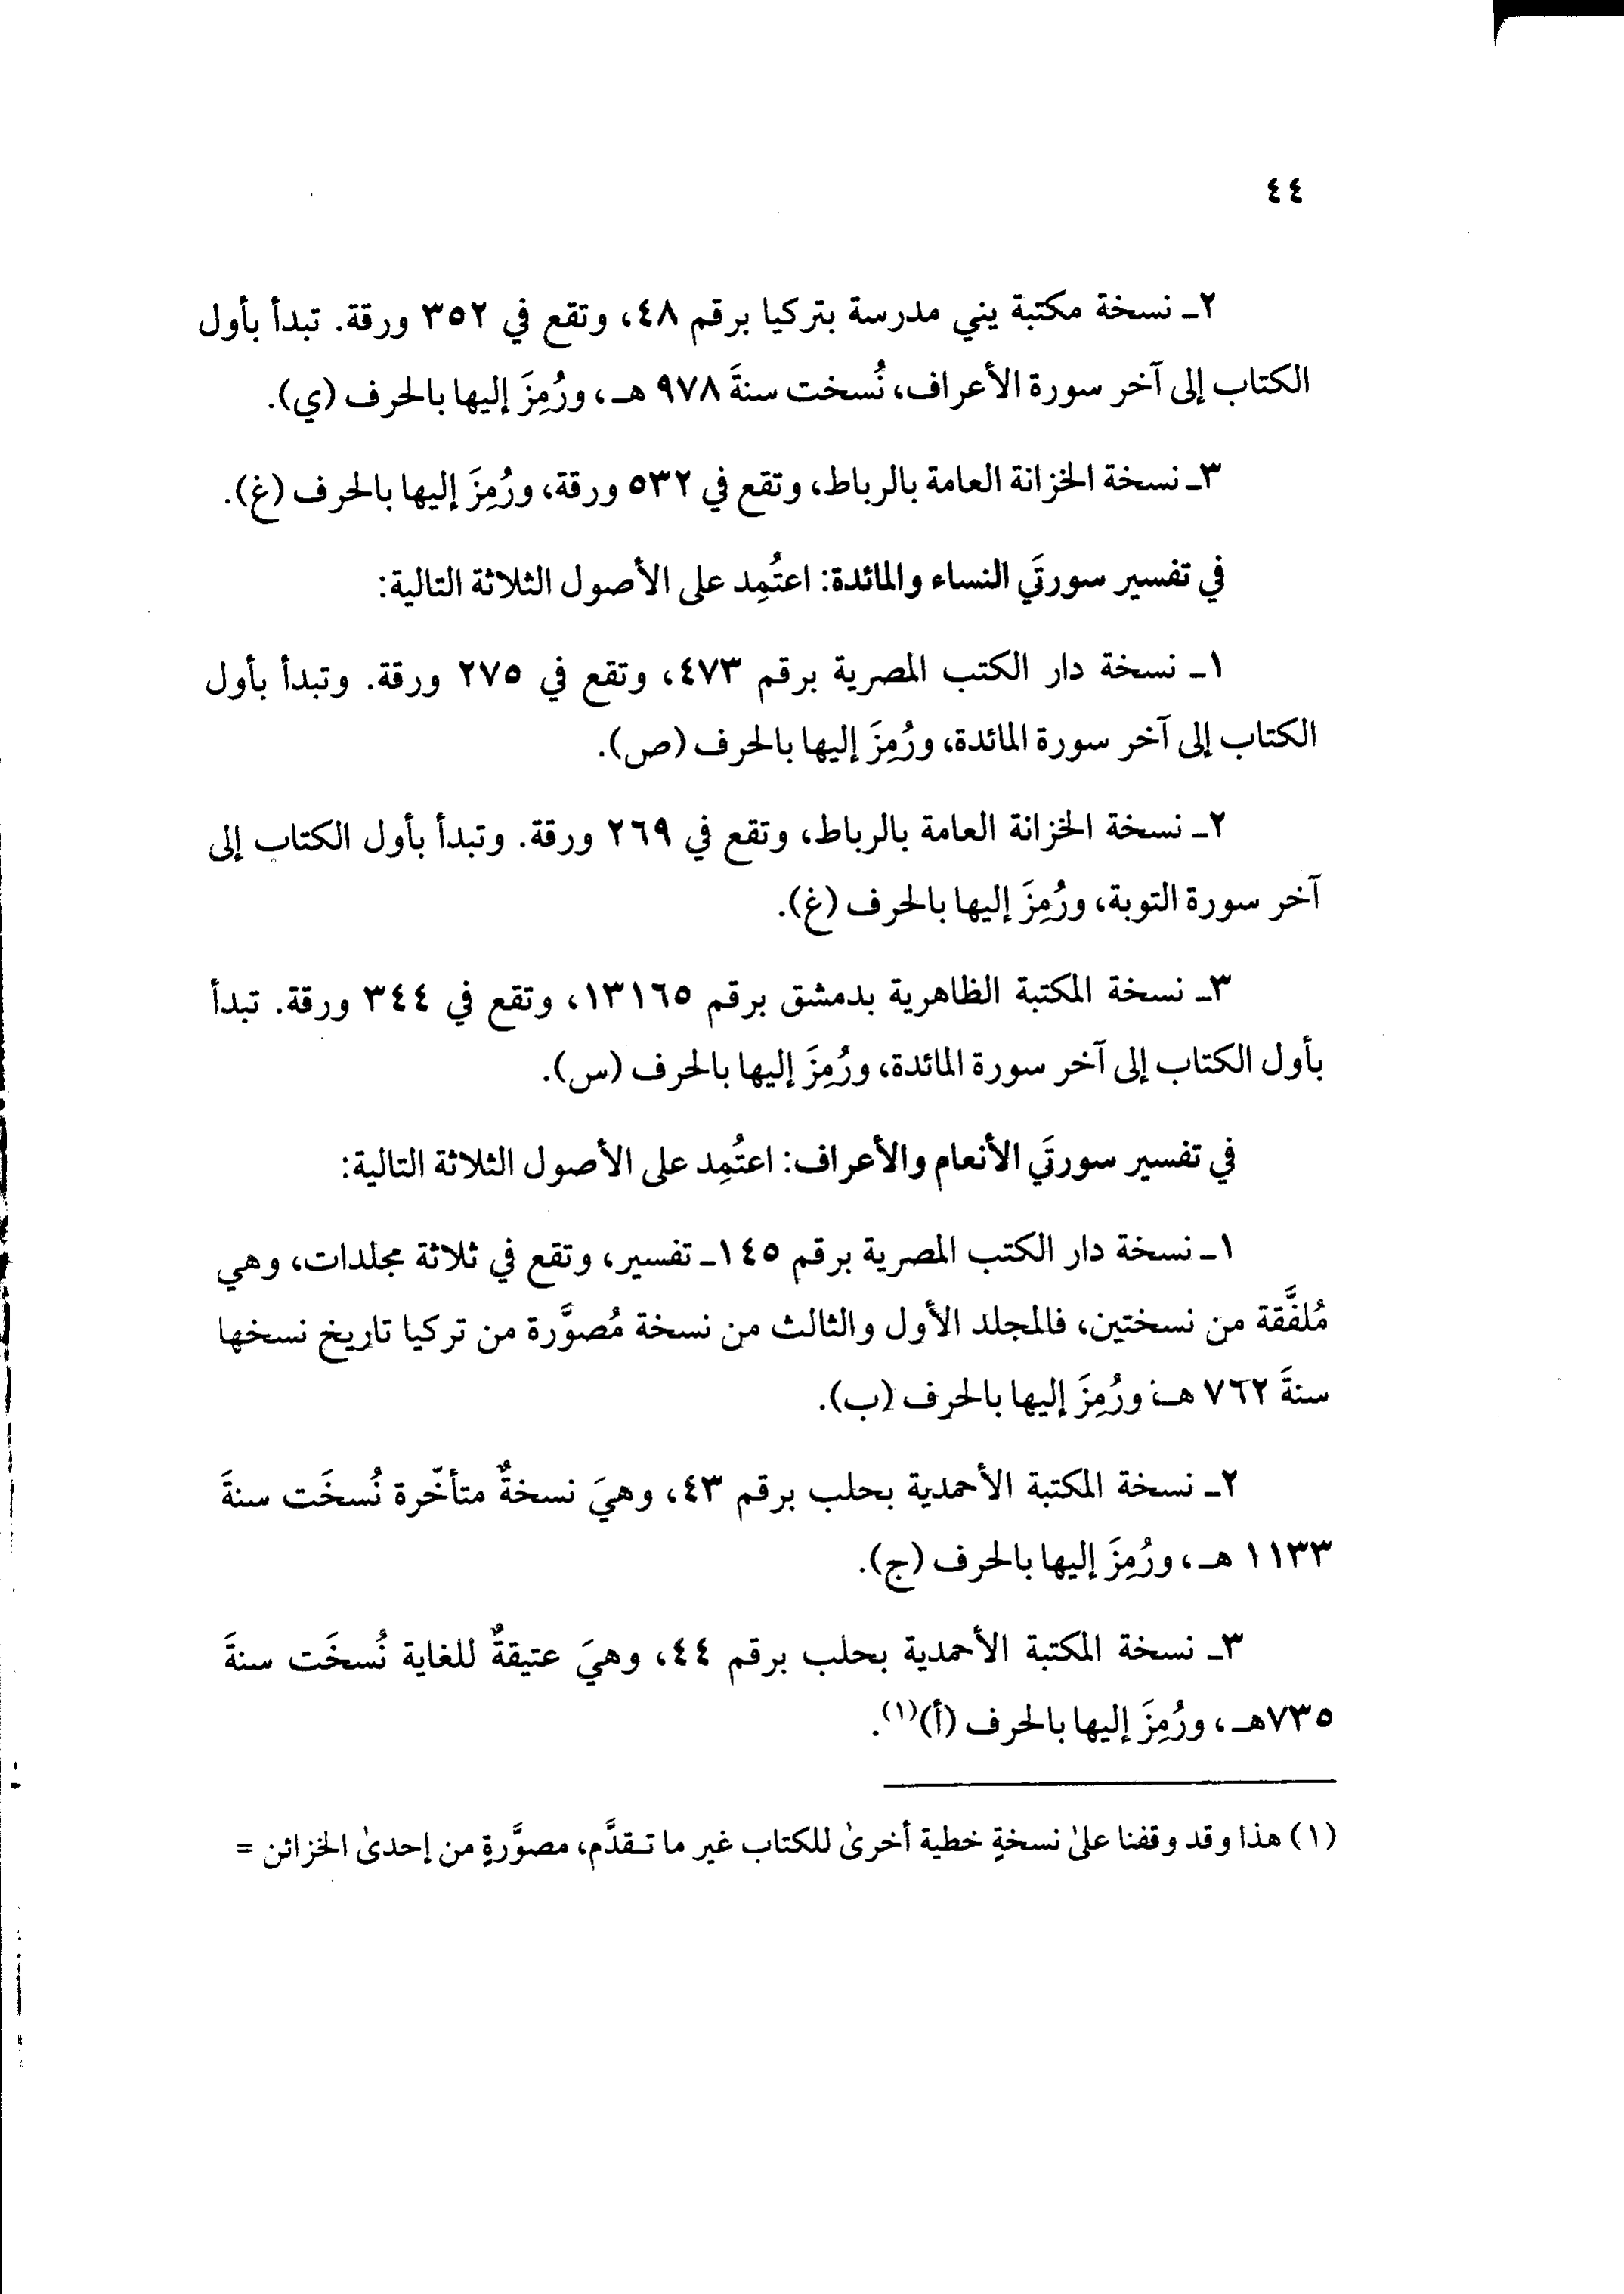 ٤٤
٢ـ نسخة مكتبة يني مدرسة بتركيا برقم ٤٨، وتقع في ٣٥٢ ورقة. تبدأ بأول
الكتاب إلى آخر سورة الأعراف، نُسخت سنةَ ٩٧٨ هـ، ورُمِزَ إليها بالحرف (ي).
٣ـ نسخة الخزانة العامة بالرباط، وتقع في ٥٣٢ ورقة، ورُمِزَ إليها بالحرف (غ).
في تفسير سورتَي النساء والمائدة: اعتُمِد على الأصول الثلاثة التالية:
١ـ نسخة دار الكتب المصرية برقم ٤٧٣، وتقع في ٢٧٥ ورقة. وتبدأ بأول
الكتاب إلى آخر سورة المائدة، ورُمِزَ إليها بالحرف (ص).
٢ـ نسخة الخزانة العامة بالرباط، وتقع في ٢٦٩ ورقة. وتبدأ بأول الكتاب إلى
آخر سورة التوبة، ورُمِزَ إليها بالحرف (غ).
٣ـ نسخة المكتبة الظاهرية بدمشق برقم ١٣١٦٥، وتقع في ٣٤٤ ورقة. تبدأ
بأول الكتاب إلى آخر سورة المائدة، ورُمِزَ إليها بالحرف (س).
في تفسير سورتَي الأنعام والأعراف: اعتُمِد على الأصول الثلاثة التالية:
١ـ نسخة دار الكتب المصرية برقم ١٤٥ـ تفسير، وتقع في ثلاثة مجلدات، وهي
مُلفَّقة من نسختين، فالمجلد الأول والثالث من نسخة مُصوَّرة من تركيا تاريخ نسخها
سنةَ ٧٦٢ هـ، ورُمِزَ إليها بالحرف (ب).
٢ـ نسخة المكتبة الأحمدية بحلب برقم ٤٣، وهيَ نسخةٌ متأخّرة نُسخَت سنةَ
١١٣٣ هـ، ورُمِزَ إليها بالحرف (ج).
٣ـ نسخة المكتبة الأحمدية بحلب برقم ٤٤، وهيَ عتيقةٌ للغاية نُسخَت سنةَ
٧٣٥هـ، ورُمِزَ إليها بالحرف (أ)(١).
(١) هذا وقد وقفنا علىٰ نسخةٍ خطية أخرىٰ للكتاب غير ما تـقدَّم، مصوَّرةٍ من إحدىٰ الخزائن =